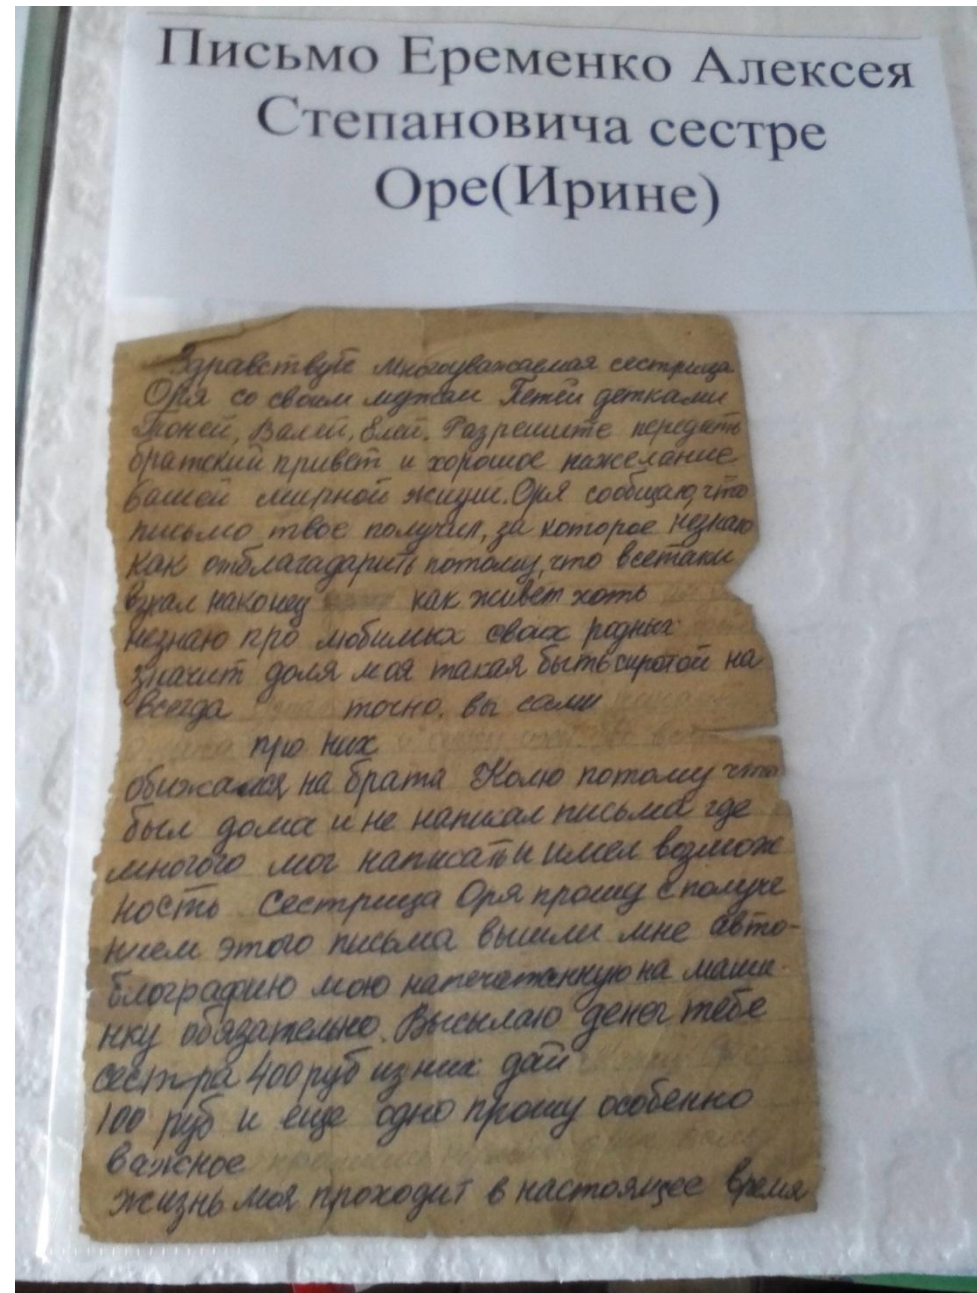 Письмо Еременко Алексея
Степановича сестре
Оре(Ирине)
Здравствуте многоуважаемая сестрица
Оря со своим мужем Петей детками
Тоней, Валей, Элей. Разрешите передать
братский привет и хорошое пожелание
вашей мирной жизни. Оря сообщаю, что
письмо твое получил, за которое незнаю
как отблагадарить потому, что всетаки
взнал наконец как живет хоть
незнаю про любимых своих родных
значит доля моя такая быть сиротой на
всегда точно. вы сами
про них
обижался на брата Колю потому что
был дома и не написал письма где
многого мог написать и имел возмож
ность Сестрица Оря прошу с получе
нием этого письма вышли мне авто-
блографию мою напечатанную на маши
нку обязательно. Высылаю денег тебе
сестра 400 руб из них дай
100 руб и еще одно прошу особенно
важное
жизнь моя проходит в настоящее время